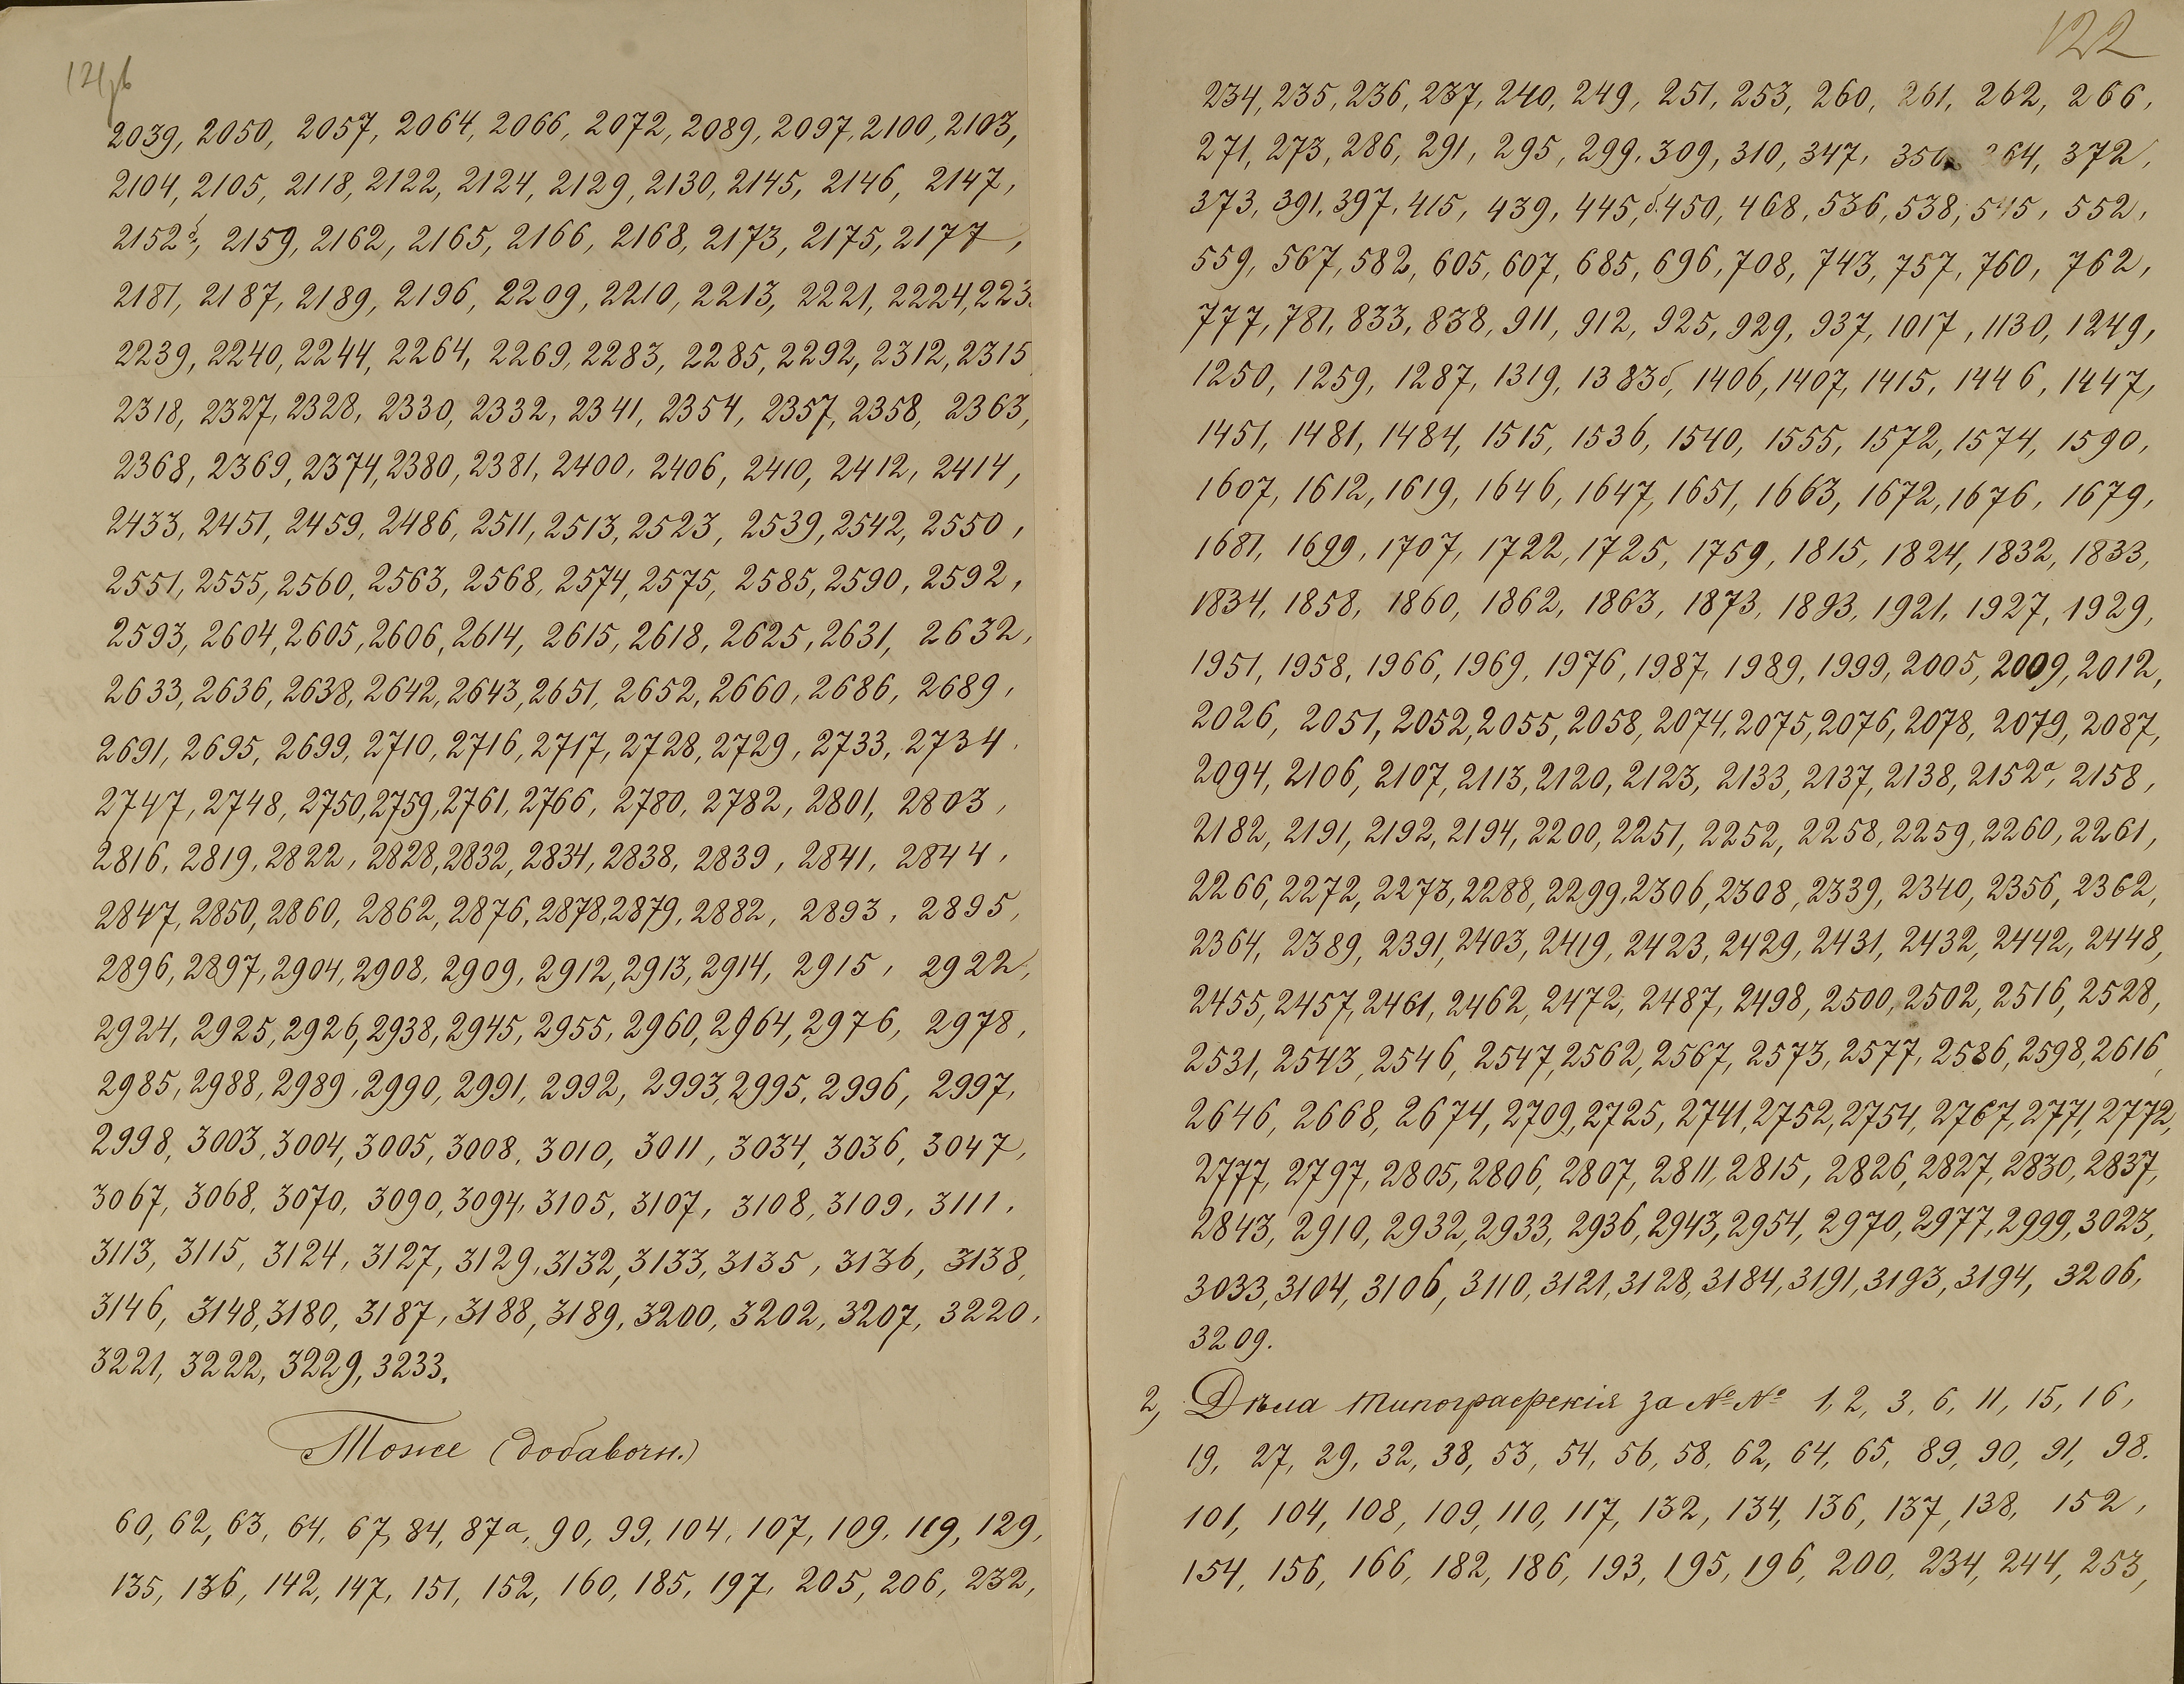 121об
2039, 2050, 2057, 2064, 2066, 2072, 2089, 2097, 2100, 2103,
2104, 2105, 2118, 2122, 2124, 2129, 2130, 2145, 2146, 2147,
2152б, 2159, 2162, 2165, 2166, 2168, 2173, 2175, 2177,
2181, 2187, 2189, 2196, 2209, 2210, 2213, 2221, 2224, 223
2239, 2240, 2244, 2264, 2269, 2283, 2285, 2292, 2312, 2315
2318, 2327, 2328, 2330, 2332, 2341, 2354, 2357, 2358, 2363,
2368, 2369, 2374, 2380, 2381, 2400, 2406, 2410, 2412, 2414,
2433, 2451, 2459, 2486, 2511, 2513, 2523, 2539, 2542, 2550,
2551, 2555, 2560, 2563, 2568, 2574, 2575, 2585, 2590, 2592,
2593, 2604, 2605, 2606, 2614, 2615, 2618, 2625, 2631, 2632,
2633, 2636, 2638, 2642, 2643, 2651, 2652, 2660, 2686, 2689,
2691, 2695, 2699, 2710, 2716, 2717, 2728, 2729, 2733, 2734.
2747, 2748, 2750, 2759, 2761, 2766, 2780, 2782, 2801, 2803,
2816, 2819, 2822, 2828, 2832, 2834, 2838, 2839, 2841, 2844,
2847, 2850, 2860, 2862, 2876, 2878, 2879, 2882, 2893, 2895,
2896, 2897, 2904, 2908, 2909, 2912, 2913, 2914, 2915, 2922,
2924, 2925, 2926, 2938, 2945, 2955, 2960, 2964, 2976, 2978,
2985, 2988, 2989, 2990, 2991, 2992, 2993, 2995, 2996, 2997,
2998, 3003, 3004, 3005, 3008, 3010, 3011, 3034, 3036, 3047,
3067, 3068, 3070, 3090, 3094, 3105, 3107, 3108, 3109, 3111,
3113, 3115, 3124, 3127, 3129, 3132, 3133, 3135, 3136, 3138,
3146, 3148, 3180, 3187, 3188, 3189, 3200, 3202, 3207, 3220,
3221, 3222, 3229, 3233.
Тоже (добавочн.)
60, 62, 63, 64, 67, 84, 87а, 90, 99, 104, 107, 109, 119, 129,
135, 136, 142, 147, 151, 152, 160, 185, 197, 205, 206, 232,
122
234, 235, 236, 237, 240, 249, 251, 253, 260, 261, 262, 266,
271, 273, 286, 291, 295, 299, 309, 310, 347, 364, 372,
373, 391, 397, 415, 439, 445,б. 450, 468, 536, 538, 545, 552,
559, 567, 582, 605, 607, 685, 696, 708, 743, 757, 760, 762,
777, 781, 833, 838, 911, 912, 925, 929, 937, 1017, 1130, 1249,
1250, 1259, 1287, 1319, 1383б, 1406, 1407, 1415, 1446, 1447,
1451, 1481, 1484, 1515, 1536, 1540, 1555, 1572, 1574, 1590,
1607, 1612, 1619, 1646, 1647, 1651, 1663, 1672, 1676, 1679,
1681, 1699, 1707, 1722, 1725, 1759, 1815, 1824, 1832, 1833,
1834, 1858, 1860, 1862, 1863, 1873, 1893, 1921, 1927, 1929,
1951, 1958, 1966, 1969, 1976, 1987, 1989, 1999, 2005, 2009, 2012,
2026, 2051, 2052, 2055, 2058, 2074, 2075, 2076, 2078, 2079, 2087,
2094, 2106, 2107, 2113, 2120, 2123, 2133, 2137, 2138, 2152а, 2158,
2182, 2191, 2192, 2194, 2200, 2251, 2252, 2258, 2259, 2260, 2261,
2266, 2272, 2273, 2288, 2299, 2306, 2308, 2339, 2340, 2356, 2362,
2364, 2389, 2391, 2403, 2419, 2423, 2429, 2431, 2432, 2442, 2448,
2455, 2457, 2461, 2462, 2472, 2487, 2498, 2500, 2502, 2516, 2528,
2531, 2543, 2546, 2547, 2562, 2567, 2573, 2577, 2586, 2598, 2616,
2646, 2668, 2674, 2709, 2725, 2741, 2752, 2754, 2767, 2771, 2772,
2777, 2797, 2805, 2806, 2807, 2811, 2815, 2826, 2827, 2830, 2837,
2843, 2910, 2932, 2933, 2936, 2943, 2954, 2970, 2977, 2999, 3023,
3033, 3104, 3106, 3110, 3121, 3128, 3184, 3191, 3193, 3194, 3206,
3209.
2, Дѣла типографскія за №№ 1, 2, 3, 6, 11, 15, 16,
19, 27, 29, 32, 38, 53, 54, 56, 58, 62, 64, 65, 89, 90, 91, 98.
101, 104, 108, 109, 110, 117, 132, 134, 136, 137, 138, 152,
154, 156, 166, 182, 186, 193, 195, 196, 200, 234, 244, 253,